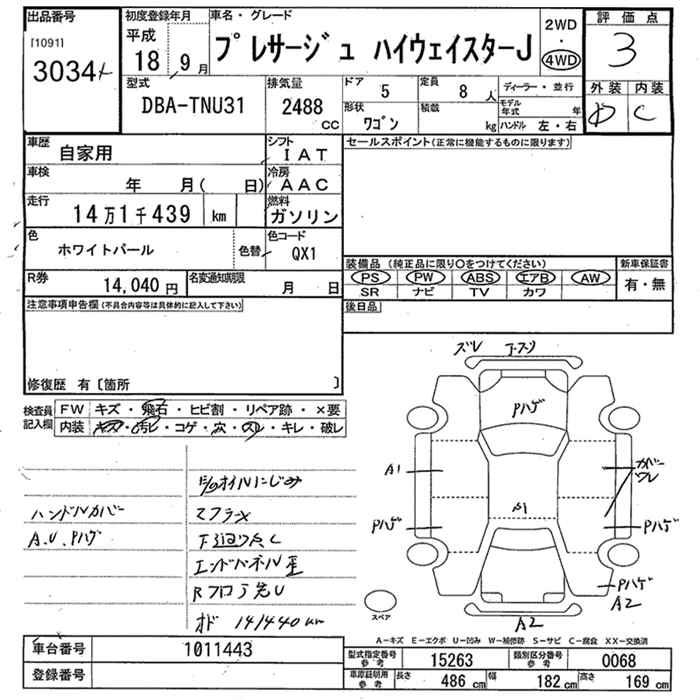 出品番号
[1091]
3034
初度登録年月
平成
18年 9月
車名・グレード
プレサージュ ハイウェイスターJ
2WD
・
4WD
評価点
3
外装 内装
D C
型式
DBA-TNU31
排気量
2488
CC
ドア 5
定員 8人
形状
ワゴン
積載
kg
ディーラー・並行
モデル年式 年
ハンドル 左・右
車歴
自家用
シフト
IAT
車検
年 月( 日)
冷房
AAC
走行
14万1千439 km
燃料
ガソリン
色
ホワイトパール
色替
色コード
QX1
R券
14,040円
名変通知期限
月 日
セールスポイント(正常に機能するものに限ります)
装備品(純正品に限り○をつけてください)
新車保証書
PS PW ABS エアB AW
有・無
SR ナビ TV カワ
後日品
注意事項申告欄(不具合内容等は具体的に記入して下さい)
修復歴 有〔箇所 〕
検査員
記入欄
FW キズ・飛石・ヒビ割・リペア跡・×要
内装 キズ・汚レ・コゲ・穴・スレ・キレ・破レ
ハンドルカバー
A.U.Pハゲ
オイルにじみ
マフラー
下廻り
エンドパネル
Rフロア
オド 141440km
ズレ
Pハゲ
A1
カバー
ワレ
A1
Pハゲ
Pハゲ
Pハゲ
A2
A2
スペア
A-キズ E-エクボ U-凹み W-補修跡 S-サビ C-腐食 XX-交換済
車台番号
1011443
登録番号
型式指定番号
参考
15263
類別区分番号
参考
0068
車庫証明用
参考
長さ 486cm
幅 182cm
高さ 169cm